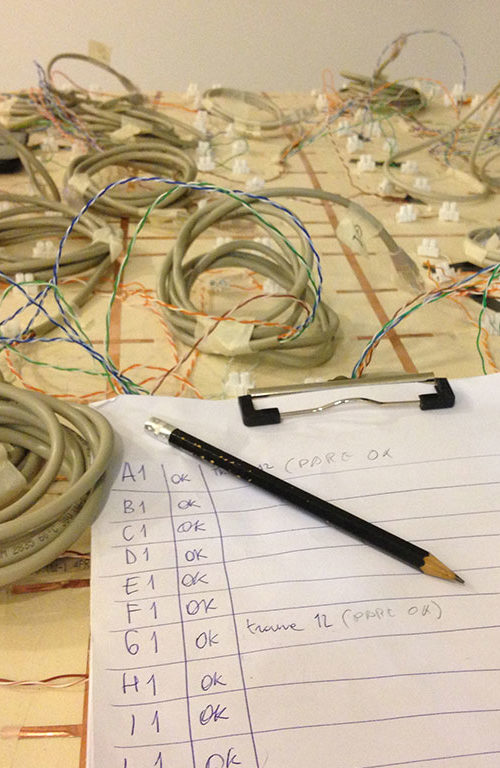 A1 OK 12 (PARE OK
B1 OK
C1 OK
D1 OK
E1 OK
F1 OK
G1 OK 12 (PARE OK)
H1 OK
I1 OK
OK